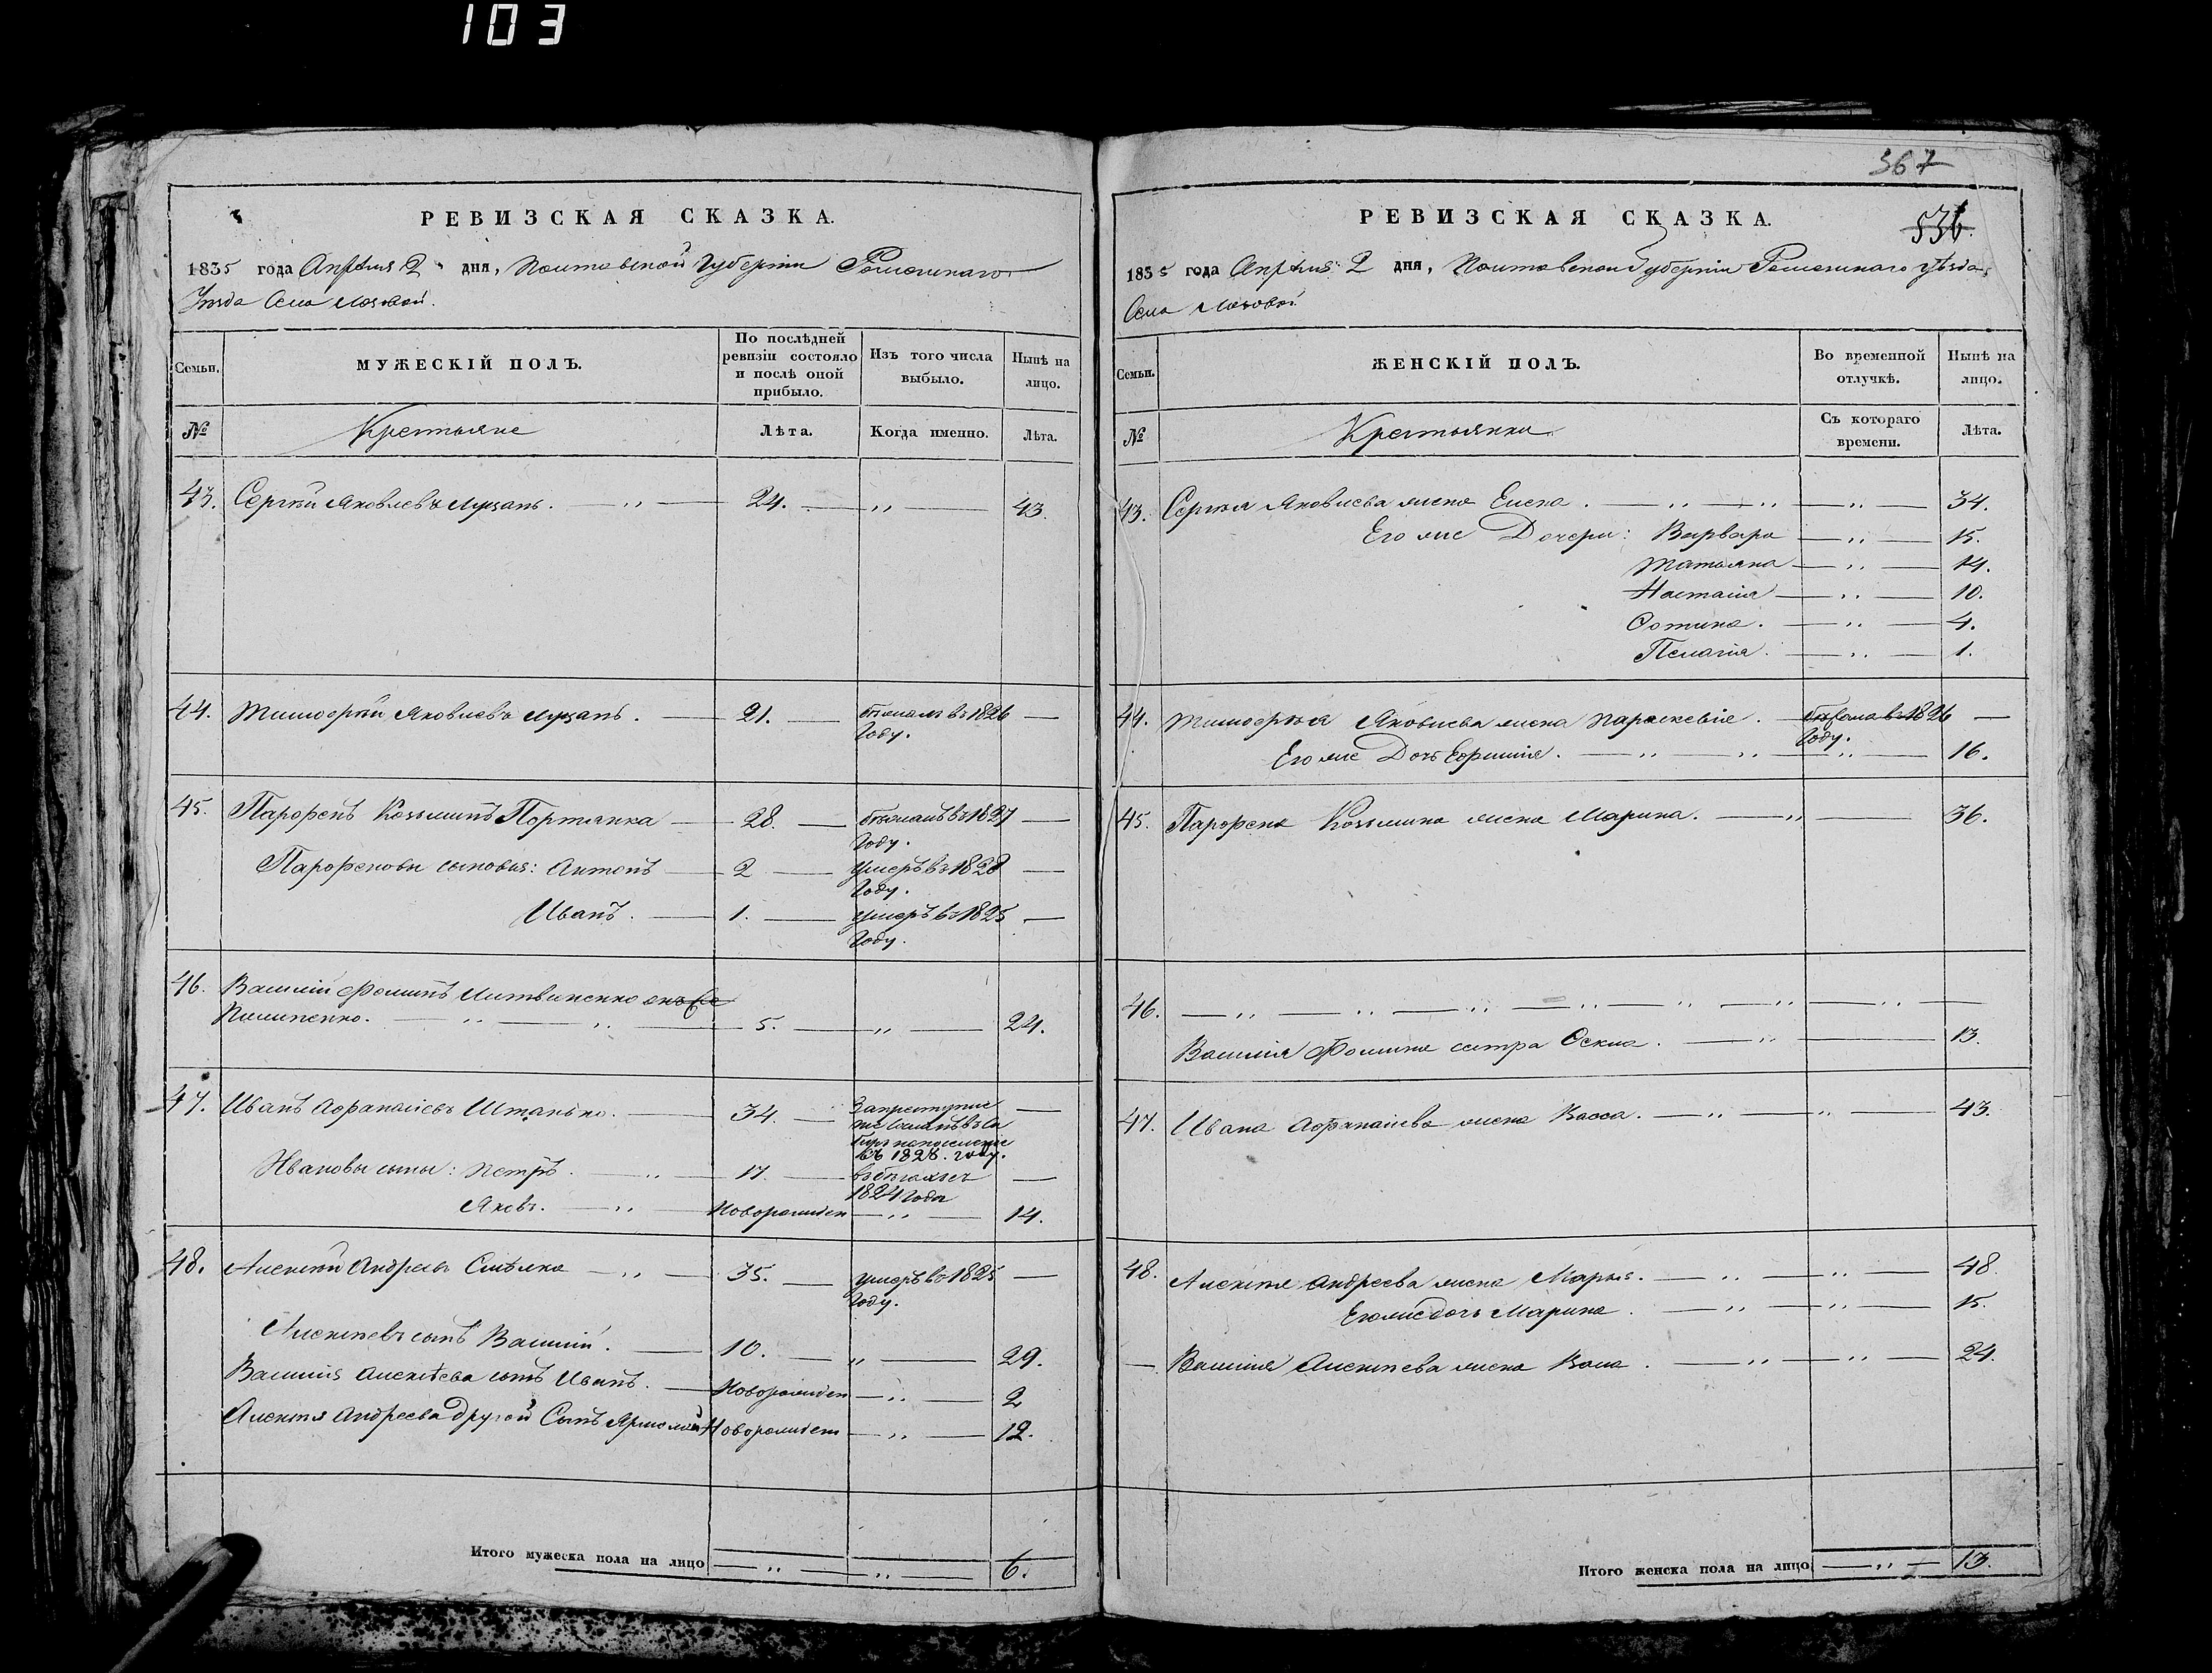 103
РЕВИЗСКАЯ СКАЗКА.
1835 года Апрѣля 2 дня, Полтавской Губерніи Роменскаго
Уѣзда Села
МУЖЕСКІЙ ПОЛЪ.
Семьи.
По послѣдней ревизіи состояло и послѣ оной прибыло.
Изъ того числа выбыло.
Нынѣ на лицо.
№ Крестьяне Лѣта. Когда именно. Лѣта.
43. Сергѣй Яковлевъ Луцанъ. — " — 24. — " — 43.
44. Тимофѣй Яковлевъ Луцанъ. — 21. — бѣжалъ въ 1826 —
Году.
45. Парфенъ Козьминъ Портянка — 28. — бѣжалъ въ 1827 —
Году.
Парфеновы сыновья: Антонъ — 2 — умеръ въ 1828 —
Году.
Иванъ. — 1. — умеръ въ 1825 —
Году.
46. Василій Фоминъ Литвиненко онъ же
Пилипенко. — " — " — 5. — " — 24.
47. Иванъ Афанасіевъ Штанько. — 34. — За преступле
ніе сосланъ въ Си
бирь на поселеніе
въ 1828. году.
Ивановы сыны: Петръ. — " — 17. — въ бѣгахъ съ —
1824 Года
Яковъ. — " — Новорожден — " — 14.
48. Алексѣй Андреевъ Смѣлка — " — 35. — умеръ въ 1825 —
Году.
Алексѣевъ сынъ Василій. — 10. — " — 29.
Василія Алексѣева сынъ Иванъ. — Новорожден — " — 2
Алексѣя Андреева другой Сынъ Ярмолай Новорожден — " — 12.
Итого мужеска пола на лицо — " — " — 6.
367
536.
РЕВИЗСКАЯ СКАЗКА.
1835 года Апрѣля 2 дня, Полтавской Губерніи Роменскаго уѣзда
Села
Семьи.
ЖЕНСКІЙ ПОЛЪ.
Во временной отлучкѣ.
Нынѣ на лицо.
№ Крестьянки Съ котораго времени. Лѣта.
43. Сергѣя Яковлева жена Елена. — " — " — " — 34.
Его же Дочери: Варвара — " — 15.
Татьяна — " — 14.
Настасія — " — 10.
— " — 4.
Пелагія. — " — 1.
44. Тимофѣя Яковлева жена Параскевія. — бѣжала въ 1826 —
Году.
Его же Дочь Ефимія. — " — " — " — 16.
45. Парфена Козьмина жена Марина. — " — 36.
46. — " — " — " — " — " — " —
Василія Фомина сестра Оекла. — " — 13.
47. Ивана Афанасіева жена Васса. — " — " — 43.
48. Алексѣя Андреева жена Марья. — " — " — 48
Его же дочь Марина. — " — " — 15.
— Василія Алексѣева жена — " — " — 24.
Итого женска пола на лицо — " — 13.